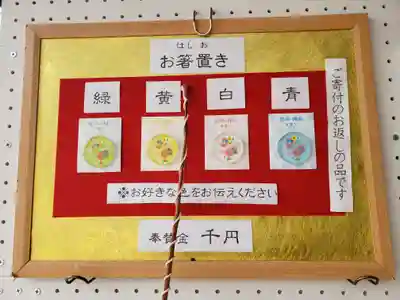 はしお
お箸置き
緑
黄
白
青
※お好きな色をお伝えください
奉賛金 千円
ご寄付のお返しの品です